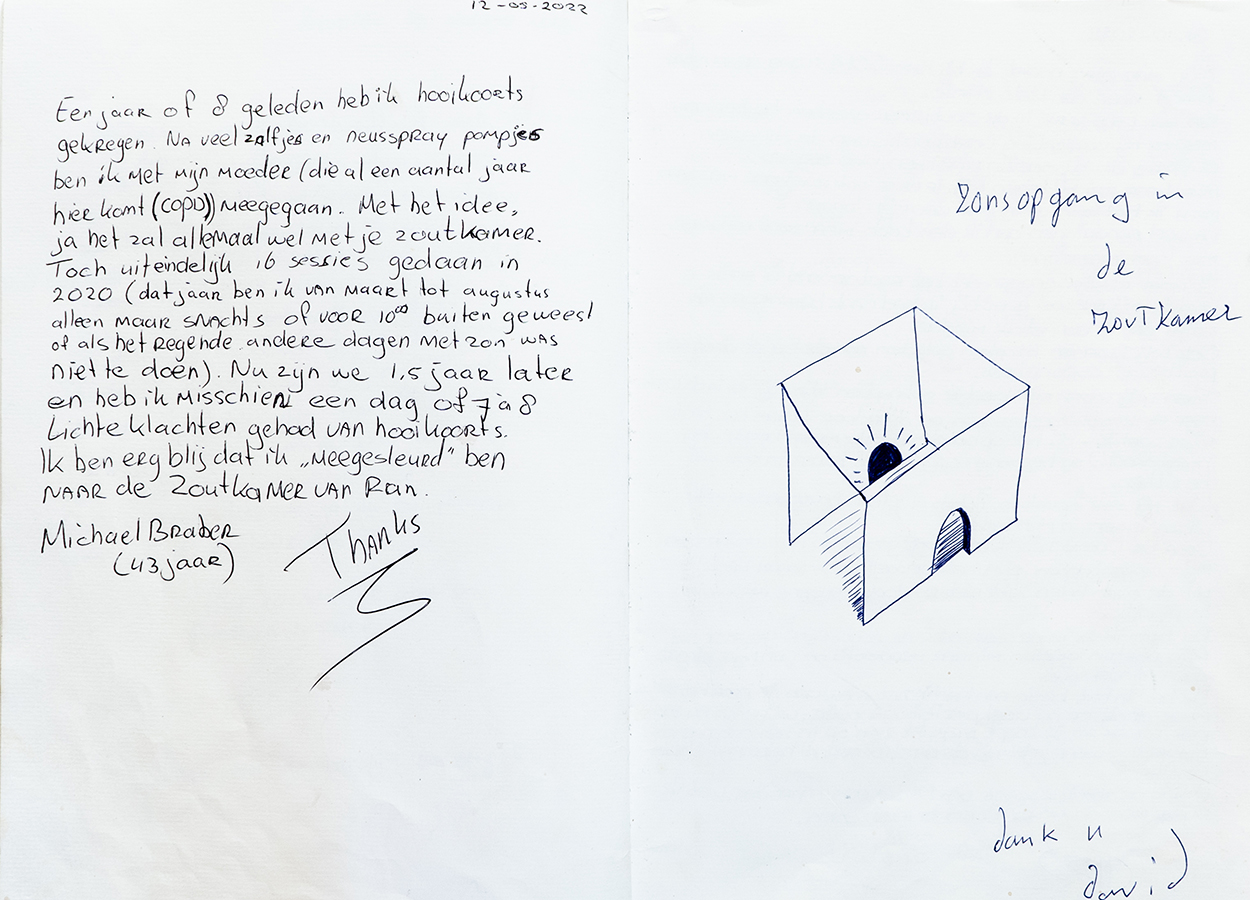 12-05-2022
Een jaar of 8 geleden heb ik hooikoorts
gekregen. Na veel zalfjes en neusspray pompjes
ben ik met mijn moeder (die al een aantal jaar
hier komt (COPD)) meegegaan. Met het idee,
ja het zal allemaal wel met je zoutkamer.
Toch uiteindelijk 16 sessies gedaan in
2020 (dat jaar ben ik van maart tot augustus
alleen maar snachts of voor 10⁰⁰ buiten geweest
of als het regende andere dagen met zon was
niet te doen). Nu zijn we 1,5 jaar later
en heb ik misschien een dag of 7 à 8
Lichte klachten gehad van hooikoorts.
Ik ben erg blij dat ik „meegesleurd" ben
naar de Zoutkamer van Ran.
Michael Braber
(43 jaar)
Thanks
Zonsopgang in
de
Zoutkamer
dank u
david